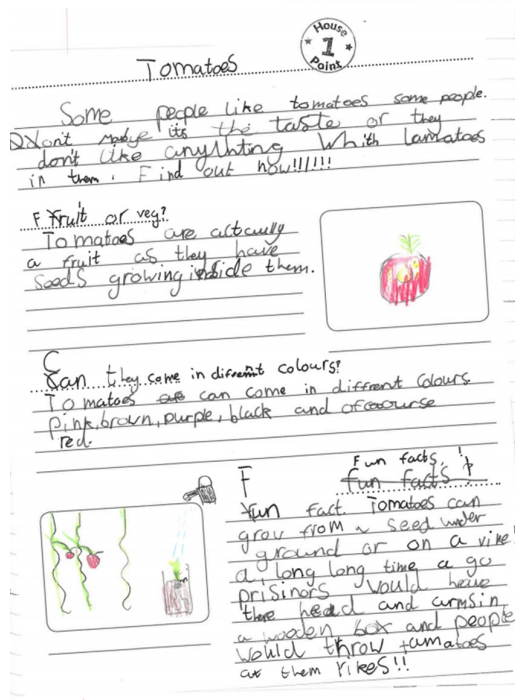 House
1
Point
Tomatoes
Some people like tomatoes some people.
Don't maybe its the taste or they
don't like anything whith tamatoes
in them. Find out now!!!!!!!
Fruit or veg?
Tomatoes are actcully
a fruit as they have
seeds growing inside them.
Can they come in difrent colours?
Tomatoes can come in diffrent colours
Pink, brown, purple, black and ofcourse
red.
Fun facts!
fun facts!
Fun fact Tomatoes can
grow from a seed under
ground or on a vine!
a long long time a go
prisinors would have
there head and arms in
a wooden box and people
would throw tamatoes
at them Yikes!!